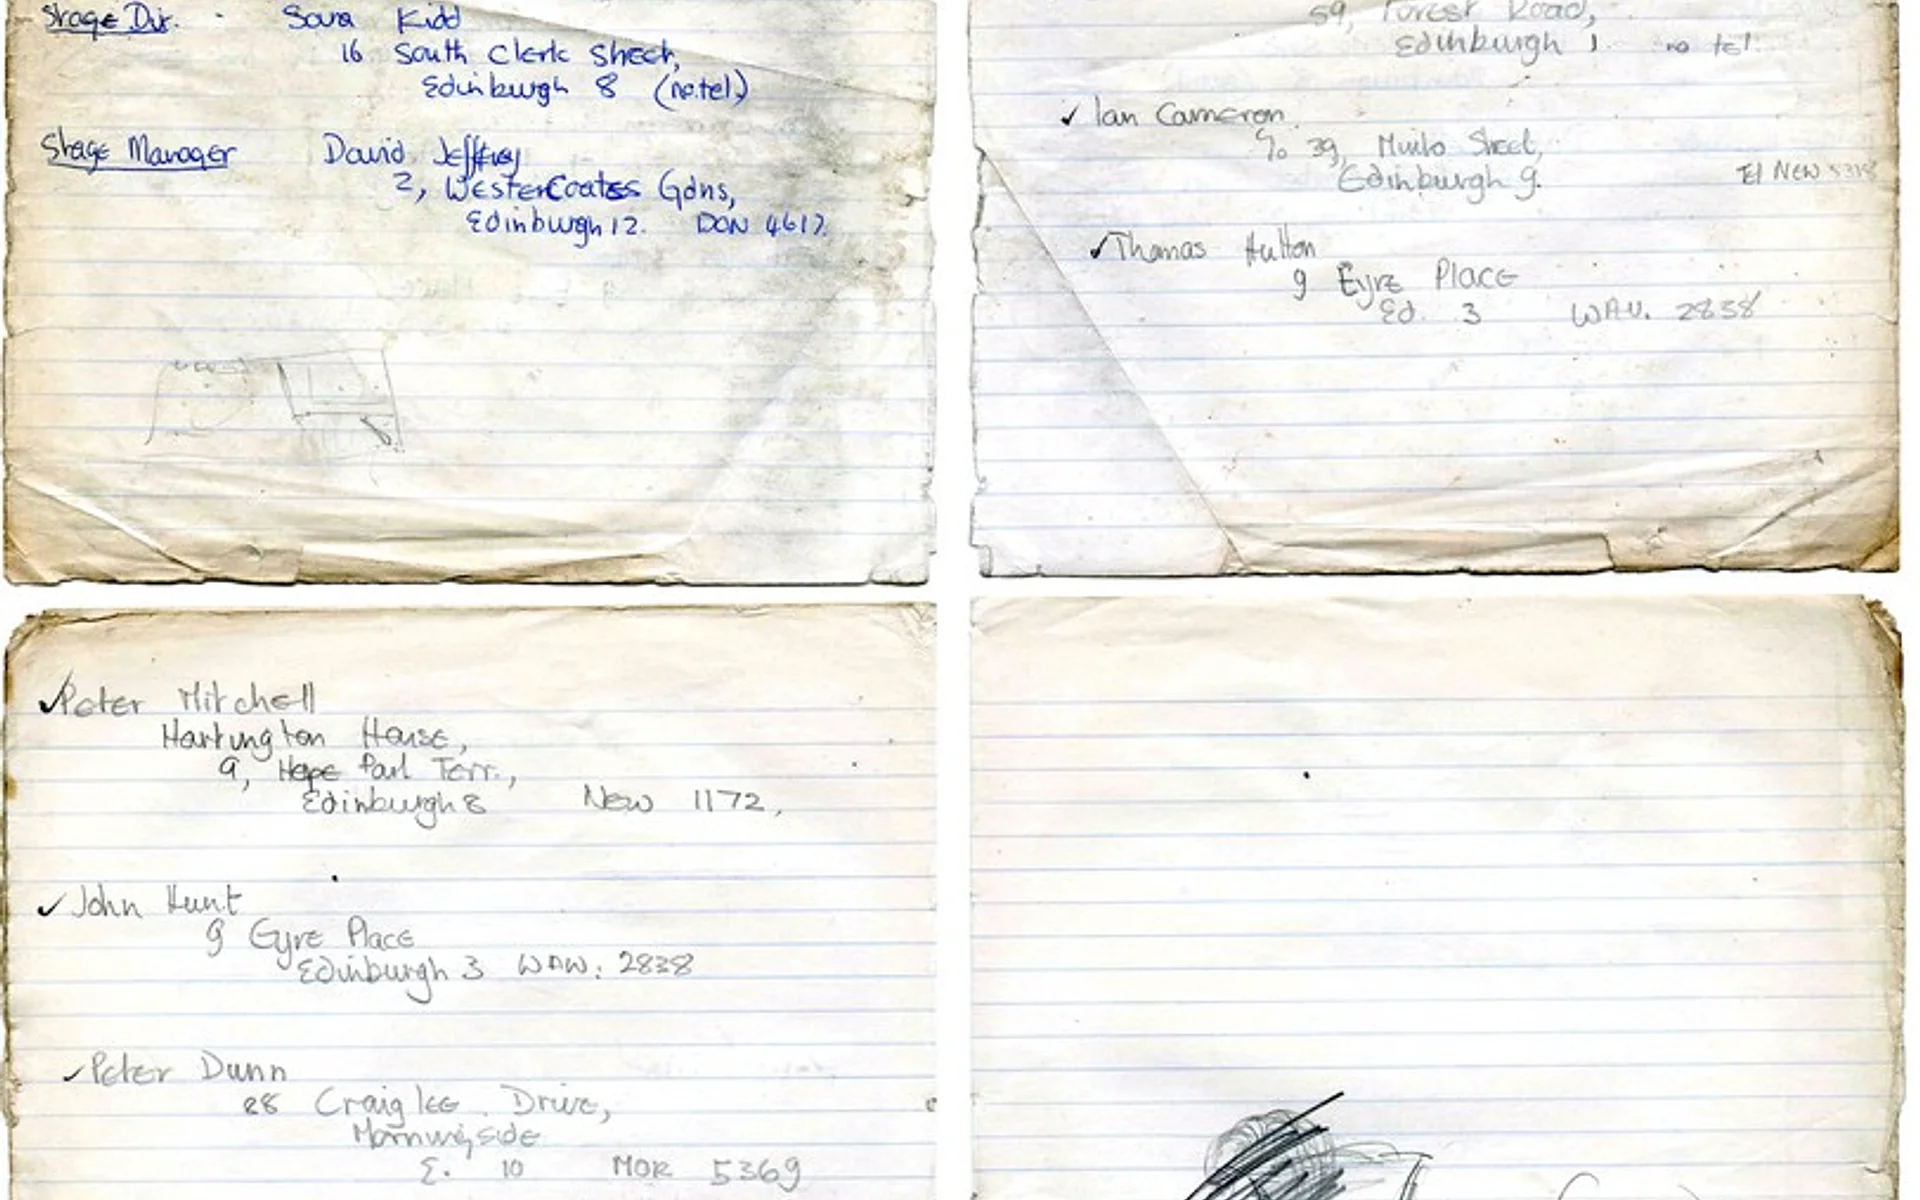 Stage Dir. - Sara Kidd
16 South Clerk Street,
Edinburgh 8 (no.tel.)
Stage Manager David Jeffrey
2, Wester Coates Gdns,
Edinburgh 12. DON 4617.
59, Forest Road,
Edinburgh 1. no tel.
✓ Ian Cameron
c/o 39, Street,
Edinburgh 9. Tel NEW 5318
✓ Thomas Hutton
9 Eyre Place
Ed. 3 WAV. 2838
✓ Peter Mitchell
Hartington House,
9, Hope Park Terr.,
Edinburgh 8 New 1172,
✓ John Hunt
9 Eyre Place
Edinburgh 3 WAW: 2838
✓ Peter Dunn
28 Craiglee Drive,
Morningside
E. 10 MOR 5369